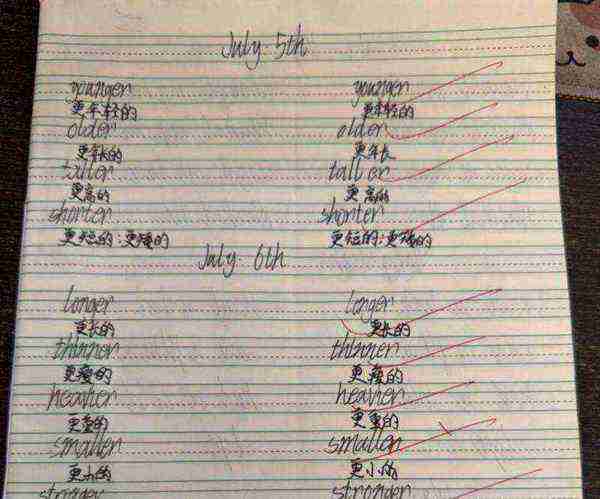 July 5th
younger younger
更年轻的 更年轻的
older older
更年长的 更年长
taller taller
更高的 更高的
shorter shorter
更短的;更矮的 更短的;更矮的
July 6th
longer longer
更长的 更长的
thinner thinner
更瘦的 更瘦的
heavier heavier
更重的 更重的
smaller smaller
更小的 更小的
stronger stronger